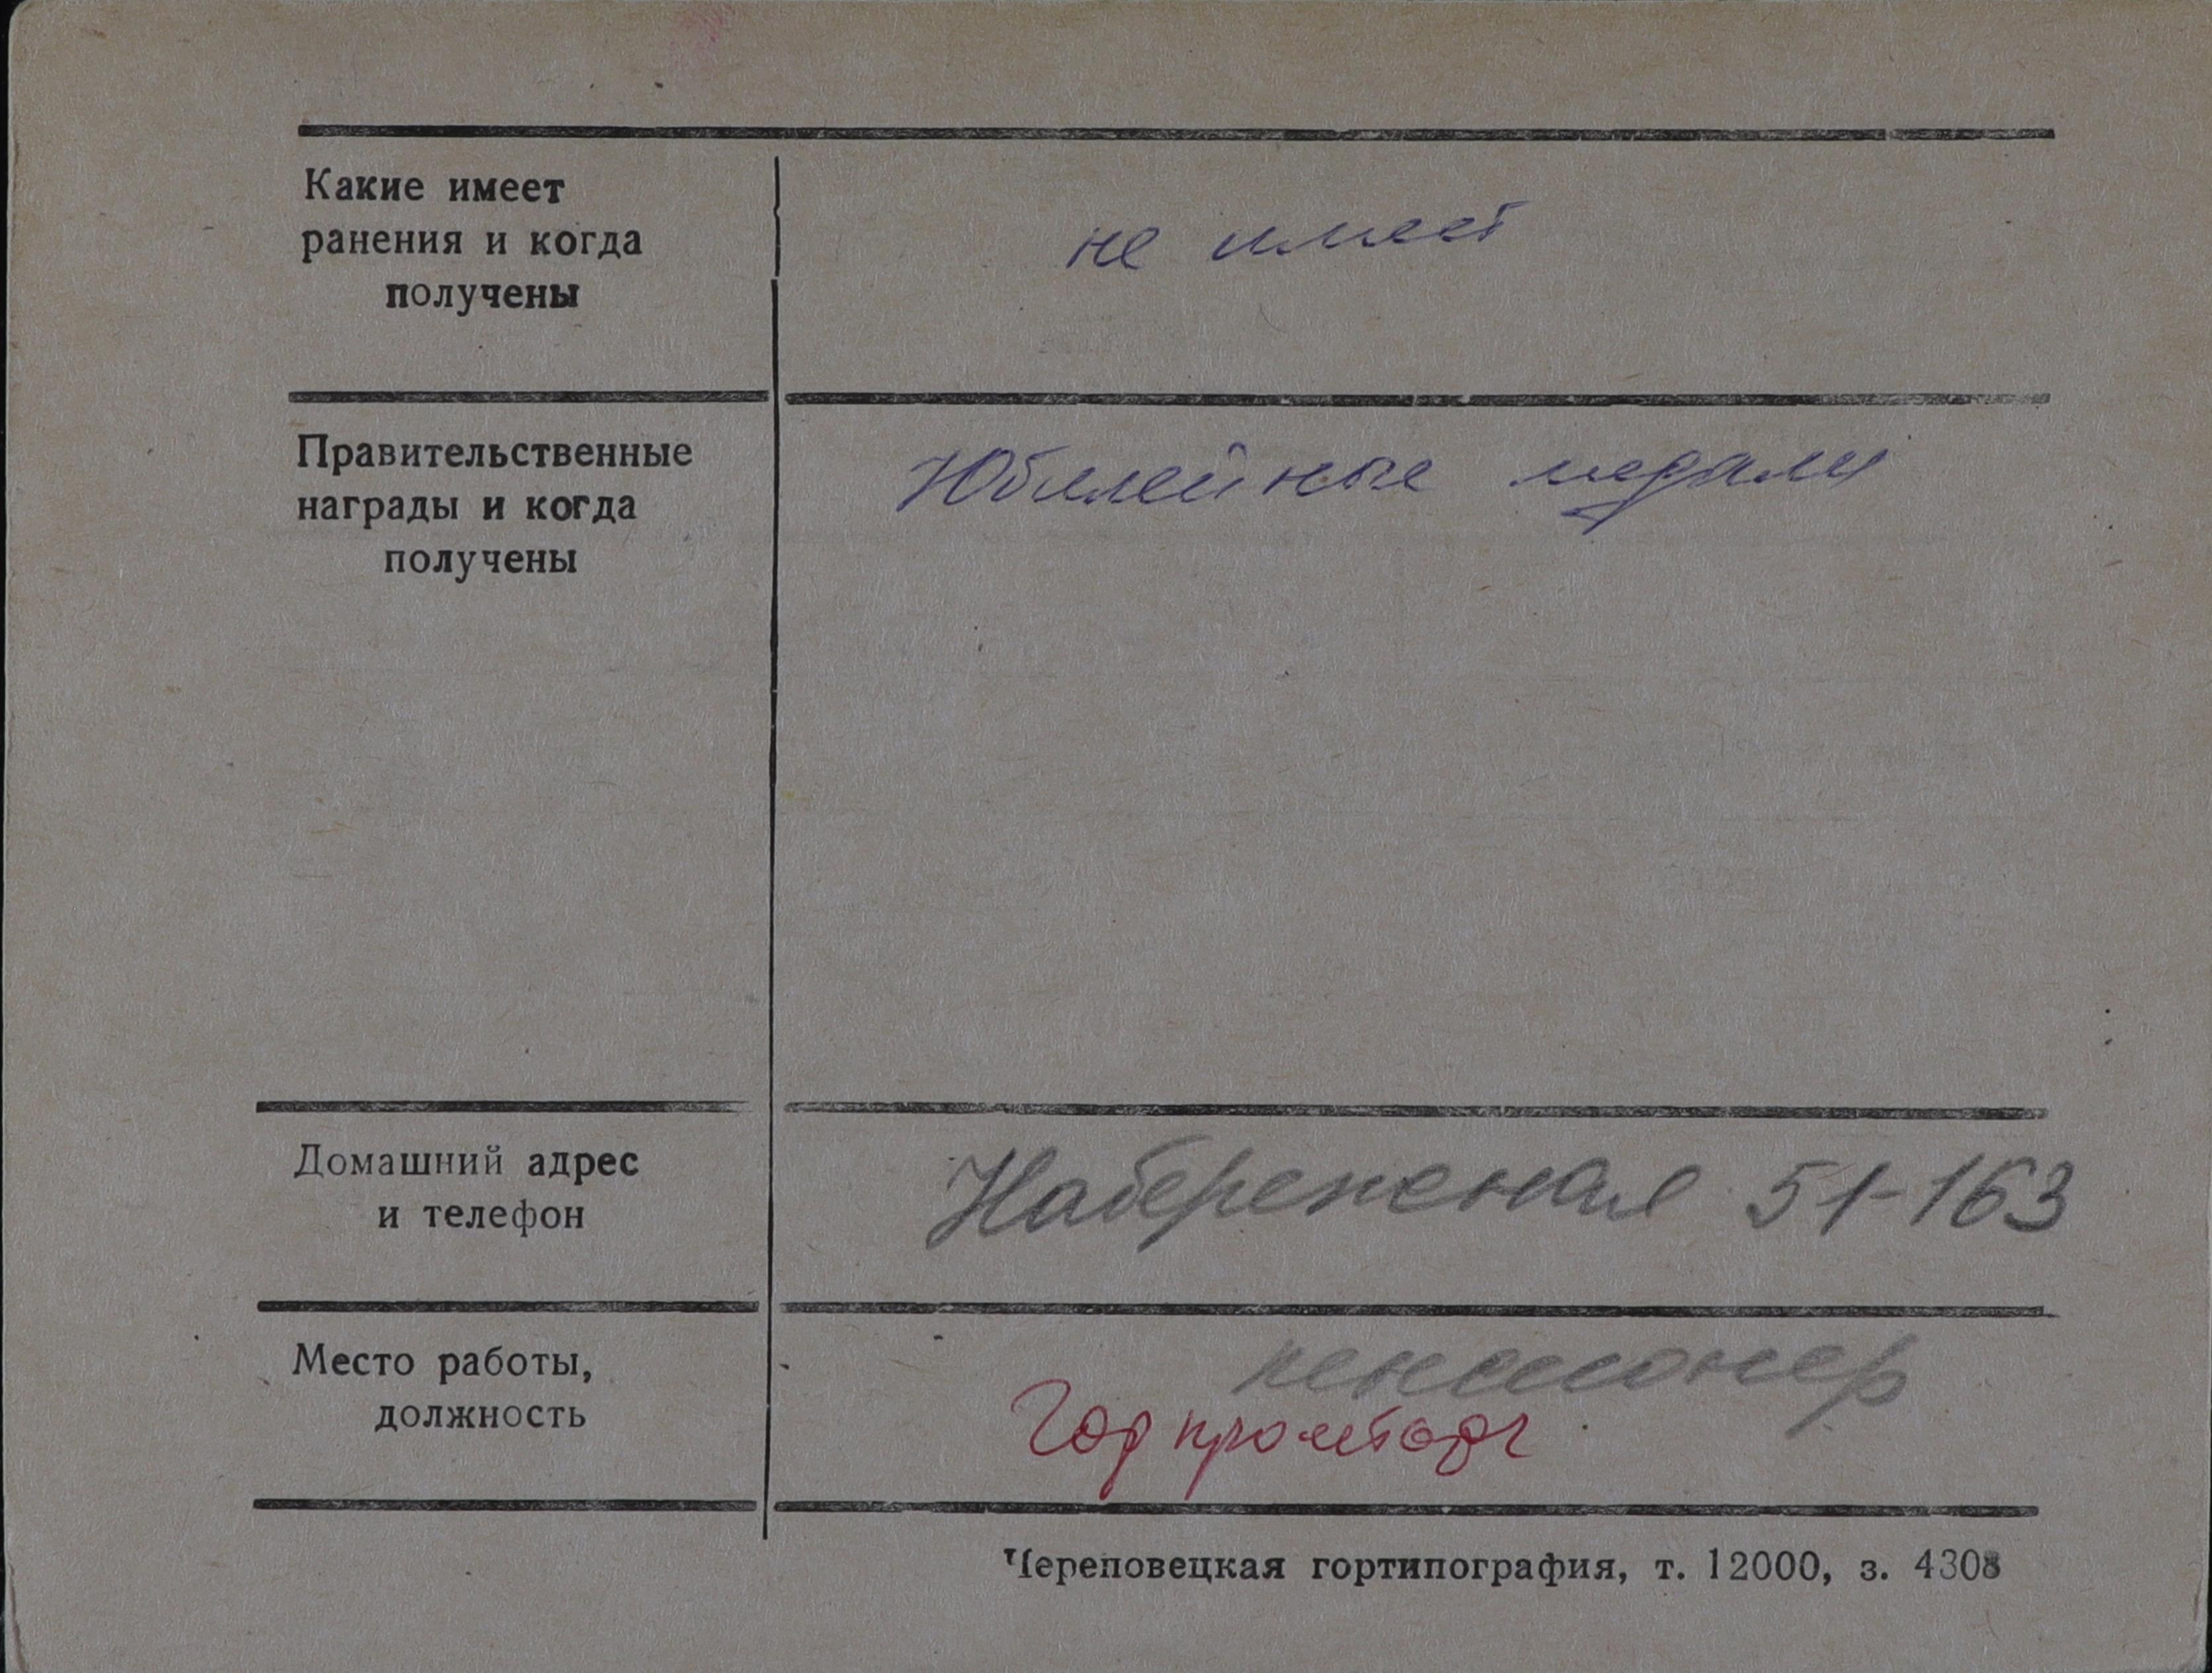 Какие имеет
ранения и когда
получены
не имеет
Правительственные
награды и когда
получены
Юбилейные медали
Домашний адрес
и телефон
Набережная 51-163
Место работы,
должность
пенсионер
Горпромторг
Череповецкая гортипография, т. 12000, з. 4308